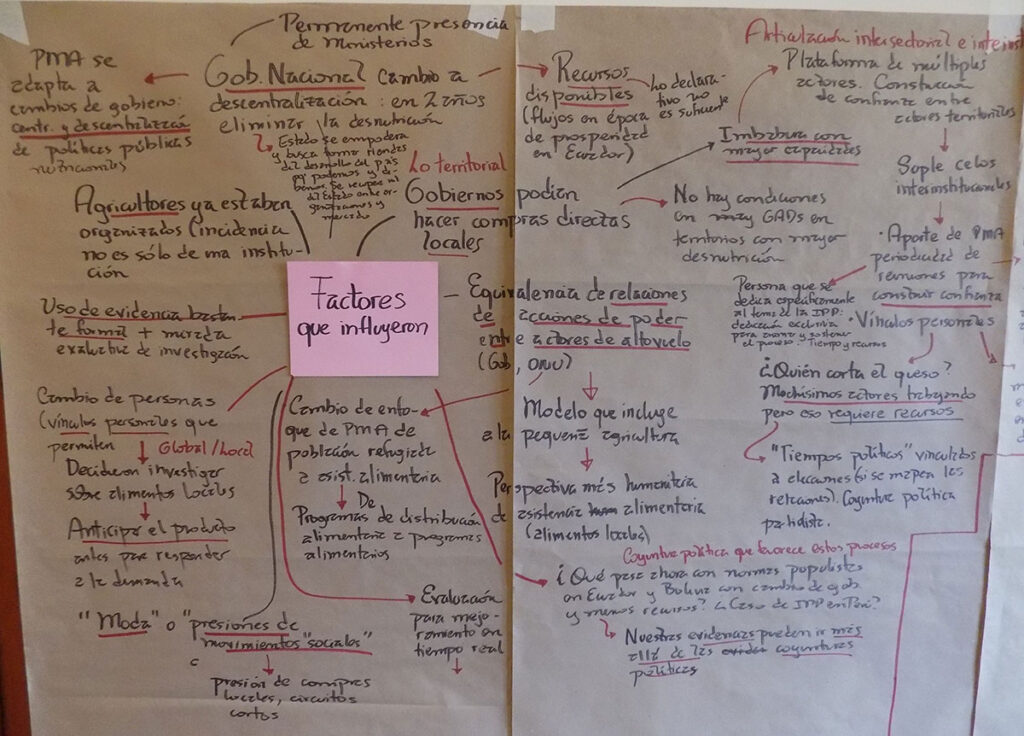 Permanente presencia
de Ministerios
PMA se
adapta a
cambios de gobierno:
centr. y descentralización
de políticas públicas
nutricionales
Gob. Nacional cambio a
descentralización: en 2 años
eliminar la desnutrición
Estado se empodera
y busca tomar riendas
del desarrollo del país
Lo territorial
Gobiernos podían
hacer compras directas
locales
Agricultores ya estaban
organizados (incidencia
no es sólo de una institu-
ción
Factores
que influyeron
Uso de evidencia bastan-
te formal + mirada
evaluativa de investigación
Cambio de personas
(vínculos personales que
permiten
Global/Local
Decidieron investigar
sobre alimentos locales
Anticipar el producto
antes para responder
a la demanda
"Moda" o "presiones de
movimientos "sociales"
c
presión de compras
locales, circuitos
cortos
Cambio de enfo-
que de PMA de
población refugiada
a asist. alimentaria
De
Programas de distribución
alimentaria a programas
alimentarios
Evaluación
para mejo-
ramiento en
tiempo real
Recursos
disponibles
(flujos en época
de prosperidad
en Ecuador)
Lo declara-
tivo no
es suficiente
Imbabura con
mayor capacidades
No hay condiciones
en muy GADs en
territorios con mayor
desnutrición
Equivalencia de relaciones
de acciones de poder
entre actores de alto vuelo
(Gob, ONU)
Modelo que incluye
a la pequeña agricultura
Perspectiva más humanitaria
de asistencia alimentaria
(alimentos locales)
Coyuntura política que favorece estos procesos
¿Qué pasa ahora con normas populistas
en Ecuador y Bolivia con cambio de gob.
y menos recursos? Caso de IMP en Perú?
Nuestras evidencias pueden ir más
allá de las coyunturas
políticas
Articulación intersectorial e interinst
Plataforma de múltiples
actores. Construcción
de confianza entre
actores territoriales
Sople celos
interinstitucionales
• Aporte de PMA
periodicidad de
reuniones para
construir confianza
Persona que se
dedica específicamente
al tema de la IPP:
dedicación exclusiva
para animar y sostener
el proceso. Tiempo y recursos
• Vínculos personales
¿Quién corta el queso?
Muchísimos actores trabajando
pero eso requiere recursos
"Tiempos políticos" vinculados
a elecciones (si se mapean las
relaciones). Coyuntura política
partidista.